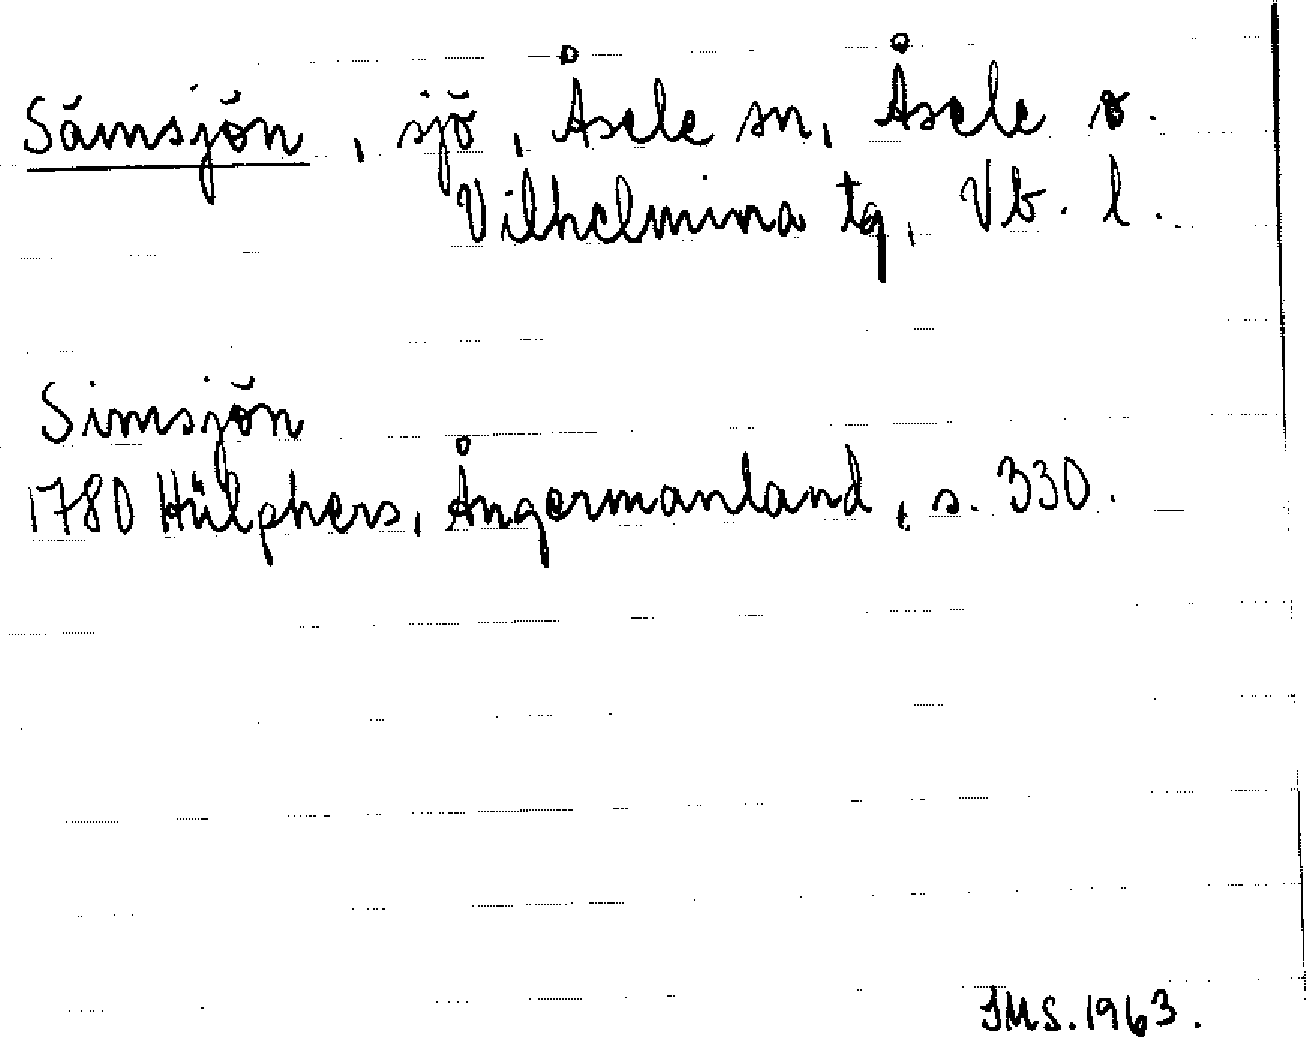 Sämsjön, sjö, Åsele sn, Åsele o.
Vilhelmina tg, Vb. l.
Simsjön
1780 Hülphers, Ångermanland, s. 330.
IMS. 1963.